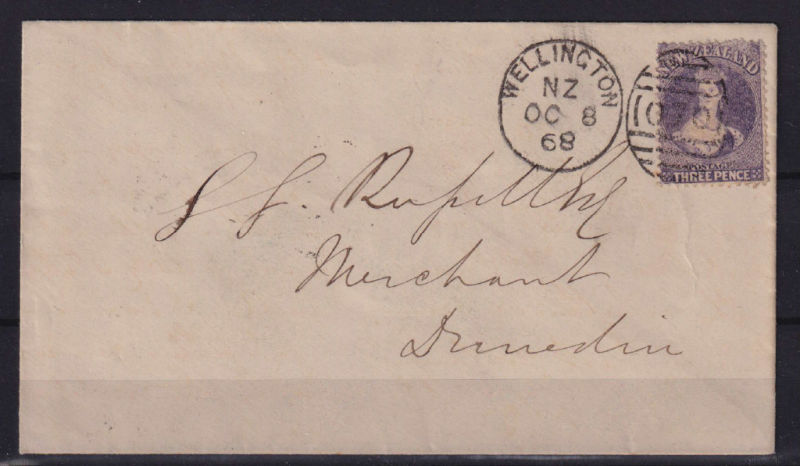 WELLINGTON
NZ
OC 8
68
ZEALAND
POSTAGE
THREE PENCE
Merchant
Dunedin